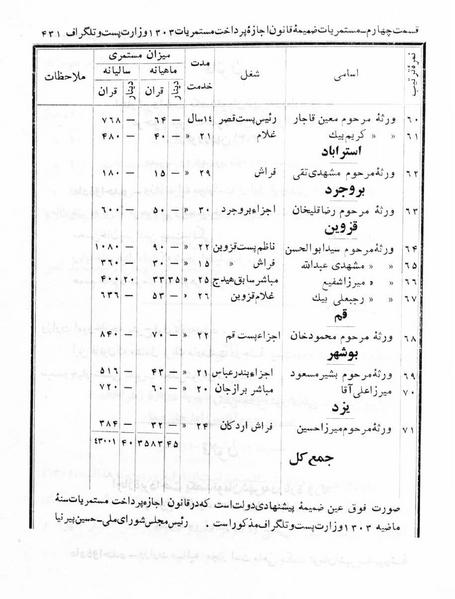 قسمت چهارم ـ مستمریات ضمیمهٔ قانون اجازهٔ پرداخت مستمریات ۱۳۰۳ وزارت پست و تلگراف ۴۳۱
نمرهٔ ترتیب اسامی شغل مدت خدمت میزان مستمری ملاحظات
ماهیانه سالیانه
قران دینار قران دینار
۶۰ ورثهٔ مرحوم معین قاجار رئیس پست قصر ۱۴ سال ۶۴ — ۷۶۸ —
۶۱ » » کریم بیك غلام ۲۱ » ۴۰ — ۴۸۰ —
استراباد
۶۲ ورثهٔ مرحوم مشهدی تقی فراش ۲۹ » ۱۵ — ۱۸۰ —
بروجرد
۶۳ ورثهٔ مرحوم رضاقلیخان اجزاء بروجرد ۳۰ » ۵۰ — ۶۰۰ —
قزوین
۶۴ ورثهٔ مرحوم سید ابوالحسن ناظم پست قزوین ۲۲ » ۹۰ — ۱۰۸۰ —
۶۵ » » مشهدی عبدالله فراش » ۱۵ » ۳۰ — ۳۶۰ —
۶۶ » » میرزا شفیع مباشر سابق هیدج ۲۵ » ۳۳ ۳۵ ۴۰۰ ۲۰
۶۷ » » رجبعلی بیك غلام قزوین ۲۶ » ۵۳ — ۶۳۶ —
قم
۶۸ ورثهٔ مرحوم محمودخان اجزاء پست قم ۲۲ » ۷۰ — ۸۴۰ —
بوشهر
۶۹ ورثهٔ مرحوم بشیر مسعود اجزاء بندرعباس ۲۱ » ۴۳ — ۵۱۶ —
۷۰ میرزا علی آقا مباشر برازجان ۲۰ » ۶۰ — ۷۲۰ —
یزد
۷۱ ورثهٔ مرحوم میرزا حسین فراش اردکان ۲۴ » ۳۲ — ۳۸۴ —
جمع کل ۳۵۸۳ ۴۵ ۴۳۰۰۱ ۴۰
صورت فوق عین ضمیمهٔ پیشنهادی دولت است که در قانون اجازهٔ پرداخت مستمریات سنهٔ
ماضیه ۱۳۰۳ وزارت پست و تلگراف مذکور است . رئیس مجلس شورای ملی ـ حسین پیرنیا